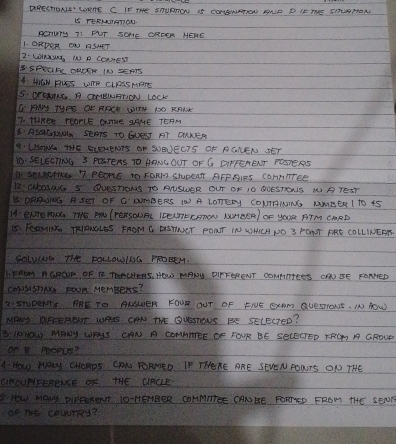 DIRECTIONS: WRITE C IF THE SITUATION IS COMBINATION AND P IF THE SITUATION
IS PERMUTATION.
ACTIVITY 7: PUT SOME ORDER HERE
1. ORDER ON A SHEET
2. WINNING IN A CONTEST
3. SPECIFIC ORDER IN SEATS
4. HIGH FIVES WITH CLASSMATE
5. OPENING A COMBINATION LOCK
6. ANY TYPE OF RACE WITH NO RANK
7. THREE PEOPLE ON THE SAME TEAM
8. ASSIGNING SEATS TO GUEST AT DINNER
9. LISTING THE ELEMENTS OF SUBJECTS OF A GIVEN SET
10. SELECTING 3 POSTERS TO HANG OUT OF 6 DIFFERENT POSTERS
11. SELECTING 7 PEOPLE TO FORM STUDENT AFFAIRS COMMITTEE
12. CHOOSING 5 QUESTIONS TO ANSWER OUT OF 10 QUESTIONS IN A TEST
13. DRAWING A SET OF 6 NUMBERS IN A LOTTERY CONTAINING NUMBER 1 TO 45
14. ENTERING THE PIN (PERSONAL IDENTIFICATION NUMBER) OF YOUR ATM CARD
15. FORMING TRIANGLES FROM 6 DISTINCT POINT IN WHICH NO 3 POINT ARE COLLINEAR
SOLVING THE FOLLOWING PROBLEM.
1. FROM A GROUP OF TEACHERS, HOW MANY DIFFERENT COMMITTEES CAN BE FORMED
CONSISTING FOUR MEMBERS?
2. STUDENTS ARE TO ANSWER FOUR OUT OF FIVE EXAM QUESTIONS. IN HOW
MANY DIFFERENT WAYS CAN THE QUESTIONS BE SELECTED?
3. IN HOW MANY WAYS CAN A COMMITTEE OF FOUR BE SELECTED FROM A GROUP
OF PEOPLE?
4. HOW MANY CHORDS CAN FORMED IF THERE ARE SEVEN POINTS ON THE
CIRCUMFERENCE OF THE CIRCLE
5. HOW MANY DIFFERENT 10-MEMBER COMMITTEE CAN BE FORMED FROM THE
OF THE COUNTRY?